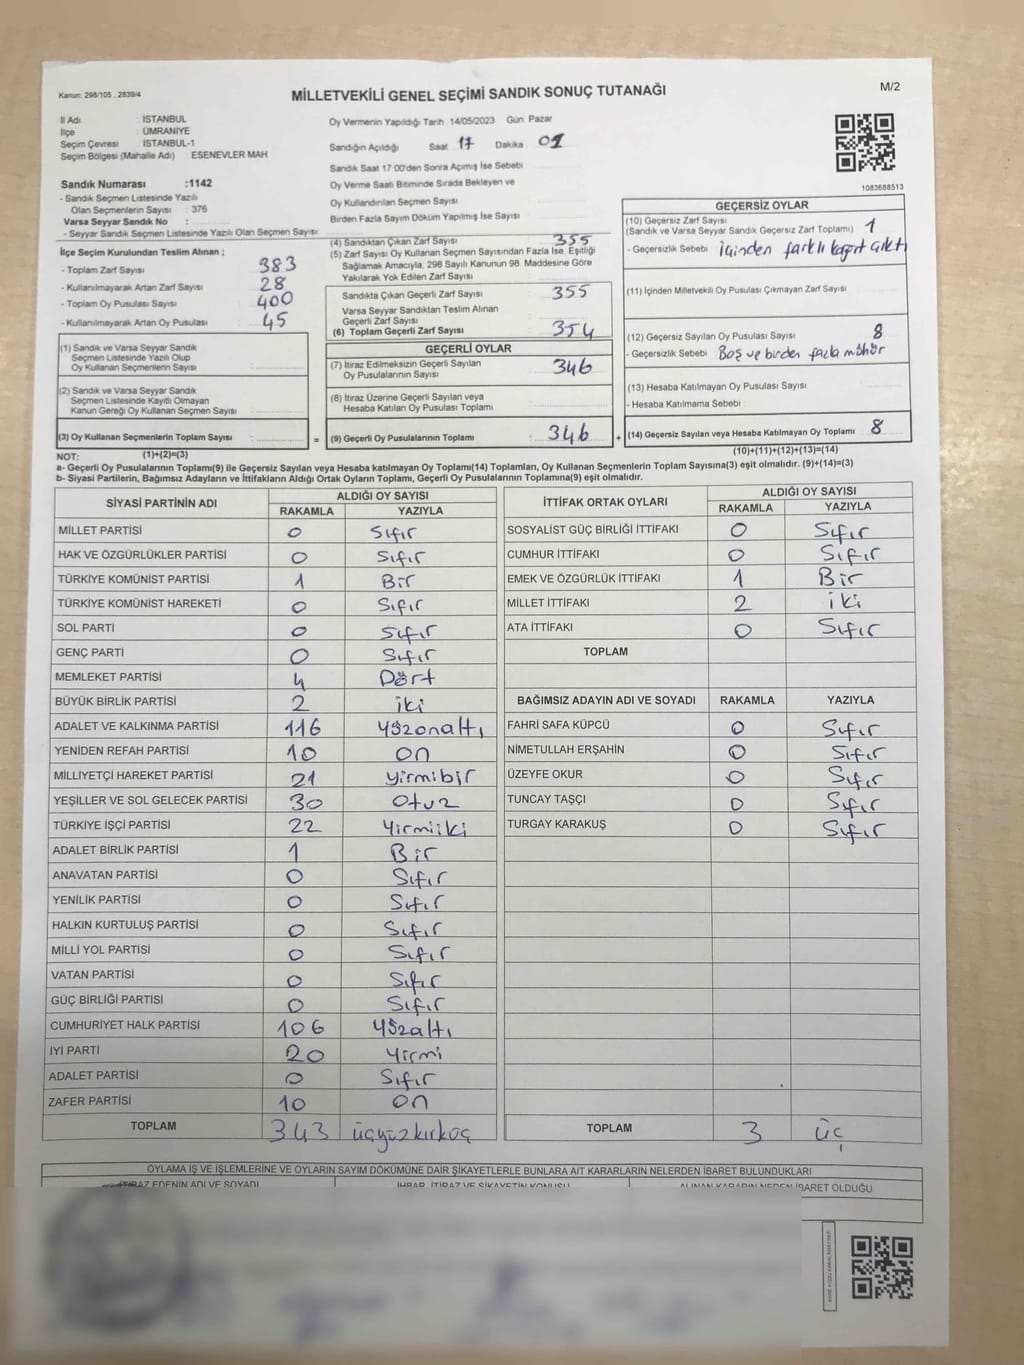 Kanun: 298/105 , 2839/4
MİLLETVEKİLİ GENEL SEÇİMİ SANDIK SONUÇ TUTANAĞI
M/2
İl Adı : İSTANBUL
İlçe : ÜMRANİYE
Seçim Çevresi : İSTANBUL-1
Seçim Bölgesi (Mahalle Adı) : ESENEVLER MAH.
Oy Vermenin Yapıldığı Tarih 14/05/2023 Gün Pazar
Sandığın Açıldığı Saat 17 Dakika 01
Sandık Saat 17:00'den Sonra Açımış İse Sebebi
Oy Verme Saati Bitiminde Sırada Bekleyen ve
Oy Kullandırılan Seçmen Sayısı
Birden Fazla Sayım Döküm Yapılmış İse Sayısı
1083688513
Sandık Numarası :1142
- Sandık Seçmen Listesinde Yazılı
Olan Seçmenlerin Sayısı : 376
Varsa Seyyar Sandık No :
- Seyyar Sandık Seçmen Listesinde Yazılı Olan Seçmen Sayısı
İlçe Seçim Kurulundan Teslim Alınan ;
- Toplam Zarf Sayısı 383
- Kullanılmayarak Artan Zarf Sayısı 28
- Toplam Oy Pusulası Sayısı 400
- Kullanılmayarak Artan Oy Pusulası 45
(1) Sandık ve Varsa Seyyar Sandık
Seçmen Listesinde Yazılı Olup
Oy Kullanan Seçmenlerin Sayısı
(2) Sandık ve Varsa Seyyar Sandık
Seçmen Listesinde Kayıtlı Olmayan
Kanun Gereği Oy Kullanan Seçmen Sayısı
(3) Oy Kullanan Seçmenlerin Toplam Sayısı =
(1)+(2)=(3)
(4) Sandıktan Çıkan Zarf Sayısı 355
(5) Zarf Sayısı Oy Kullanan Seçmen Sayısından Fazla İse, Eşitliği
Sağlamak Amacıyla, 298 Sayılı Kanunun 98. Maddesine Göre
Yakılarak Yok Edilen Zarf Sayısı
Sandıkta Çıkan Geçerli Zarf Sayısı : 355
Varsa Seyyar Sandıktan Teslim Alınan
Geçerli Zarf Sayısı
(6) Toplam Geçerli Zarf Sayısı : 354
GEÇERLİ OYLAR
(7) İtiraz Edilmeksizin Geçerli Sayılan
Oy Pusulalarının Sayısı 346
(8) İtiraz Üzerine Geçerli Sayılan veya
Hesaba Katılan Oy Pusulası Toplamı
(9) Geçerli Oy Pusulalarının Toplamı : 346 +
GEÇERSİZ OYLAR
(10) Geçersiz Zarf Sayısı 1
(Sandık ve Varsa Seyyar Sandık Geçersiz Zarf Toplamı)
- Geçersizlik Sebebi : içinden farklı kağıt çıktı
(11) İçinden Milletvekili Oy Pusulası Çıkmayan Zarf Sayısı
(12) Geçersiz Sayılan Oy Pusulası Sayısı : 8
- Geçersizlik Sebebi Boş ve birden fazla mühür
(13) Hesaba Katılmayan Oy Pusulası Sayısı
- Hesaba Katılmama Sebebi
(14) Geçersiz Sayılan veya Hesaba Katılmayan Oy Toplamı 8
(10)+(11)+(12)+(13)=(14)
NOT:
a- Geçerli Oy Pusulalarının Toplamı(9) ile Geçersiz Sayılan veya Hesaba katılmayan Oy Toplamı(14) Toplamları, Oy Kullanan Seçmenlerin Toplam Sayısına(3) eşit olmalıdır. (9)+(14)=(3)
b- Siyasi Partilerin, Bağımsız Adayların ve İttifakların Aldığı Ortak Oyların Toplamı, Geçerli Oy Pusulalarının Toplamına(9) eşit olmalıdır.
SİYASİ PARTİNİN ADI ALDIĞI OY SAYISI
RAKAMLA YAZIYLA
MİLLET PARTİSİ 0 Sıfır
HAK VE ÖZGÜRLÜKLER PARTİSİ 0 Sıfır
TÜRKİYE KOMÜNİST PARTİSİ 1 Bir
TÜRKİYE KOMÜNİST HAREKETİ 0 Sıfır
SOL PARTİ 0 Sıfır
GENÇ PARTİ 0 Sıfır
MEMLEKET PARTİSİ 4 Dört
BÜYÜK BİRLİK PARTİSİ 2 iki
ADALET VE KALKINMA PARTİSİ 116 Yüzonaltı
YENİDEN REFAH PARTİSİ 10 on
MİLLİYETÇİ HAREKET PARTİSİ 21 yirmibir
YEŞİLLER VE SOL GELECEK PARTİSİ 30 Otuz
TÜRKİYE İŞÇİ PARTİSİ 22 Yirmiiki
ADALET BİRLİK PARTİSİ 1 Bir
ANAVATAN PARTİSİ 0 Sıfır
YENİLİK PARTİSİ 0 Sıfır
HALKIN KURTULUŞ PARTİSİ 0 Sıfır
MİLLİ YOL PARTİSİ 0 Sıfır
VATAN PARTİSİ 0 Sıfır
GÜÇ BİRLİĞİ PARTİSİ 0 Sıfır
CUMHURİYET HALK PARTİSİ 106 Yüzaltı
İYİ PARTİ 20 Yirmi
ADALET PARTİSİ 0 Sıfır
ZAFER PARTİSİ 10 on
TOPLAM 343 üçyüzkırküç
İTTİFAK ORTAK OYLARI ALDIĞI OY SAYISI
RAKAMLA YAZIYLA
SOSYALİST GÜÇ BİRLİĞİ İTTİFAKI 0 Sıfır
CUMHUR İTTİFAKI 0 Sıfır
EMEK VE ÖZGÜRLÜK İTTİFAKI 1 Bir
MİLLET İTTİFAKI 2 iki
ATA İTTİFAKI 0 Sıfır
TOPLAM
BAĞIMSIZ ADAYIN ADI VE SOYADI RAKAMLA YAZIYLA
FAHRİ SAFA KÜPCÜ 0 Sıfır
NİMETULLAH ERŞAHİN 0 Sıfır
ÜZEYFE OKUR 0 Sıfır
TUNCAY TAŞÇI 0 Sıfır
TURGAY KARAKUŞ 0 Sıfır
TOPLAM 3 üç
OYLAMA İŞ VE İŞLEMLERİNE VE OYLARIN SAYIM DÖKÜMÜNE DAİR ŞİKAYETLERLE BUNLARA AİT KARARLARIN NELERDEN İBARET BULUNDUKLARI
İTİRAZ EDENİN ADI VE SOYADI İHBAR, İTİRAZ VE ŞİKAYETİN KONUSU ALINAN KARARIN NEDEN İBARET OLDUĞU